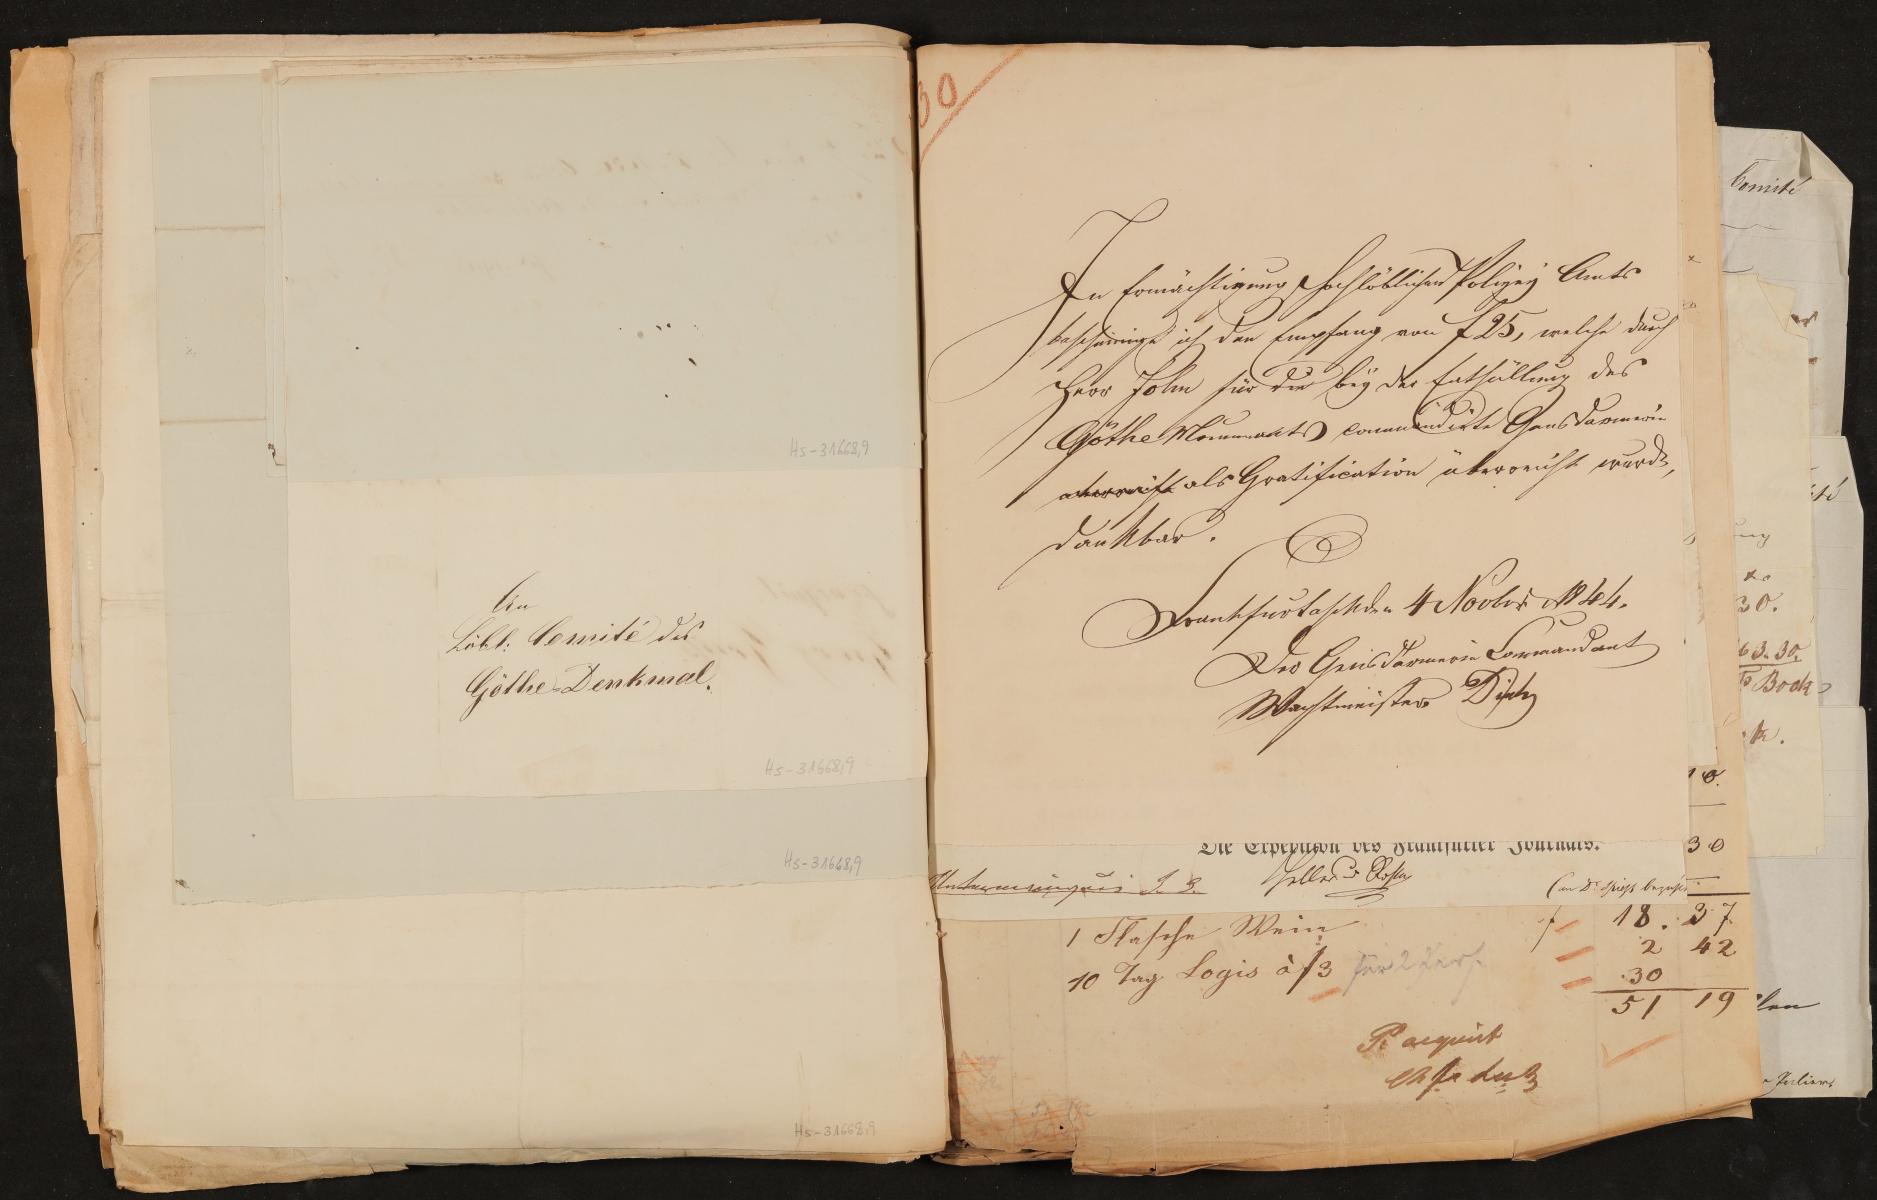 Hs-31668,9
An
Löbl: Comité des
Göthe-Denkmal.
Hs-31668,9
Hs-31668,9
Hs-31668,9
30
In Ermächtigung Hochlöblichen Polizey Amts
bescheinige ich den Empfang von f 25, welche durch
Herr John für die bey der Enthüllung des
Göthe Monuments commandirte Gensdarmerie
überreicht als Gratification überreicht wurde,
dankbar.
Frankfurt a/M den 4 Novbr 1844.
Der Gensdarmerie Commandant
Wachtmeister
Die Expedition des Frankfurter Journals.
1 Flasche Wein
10 Tag Logis à f 3 für 2 Pers.
f 18. 37
2 42
30
51 19
Pr acquit
Comité
30.
63.30.
10.
30